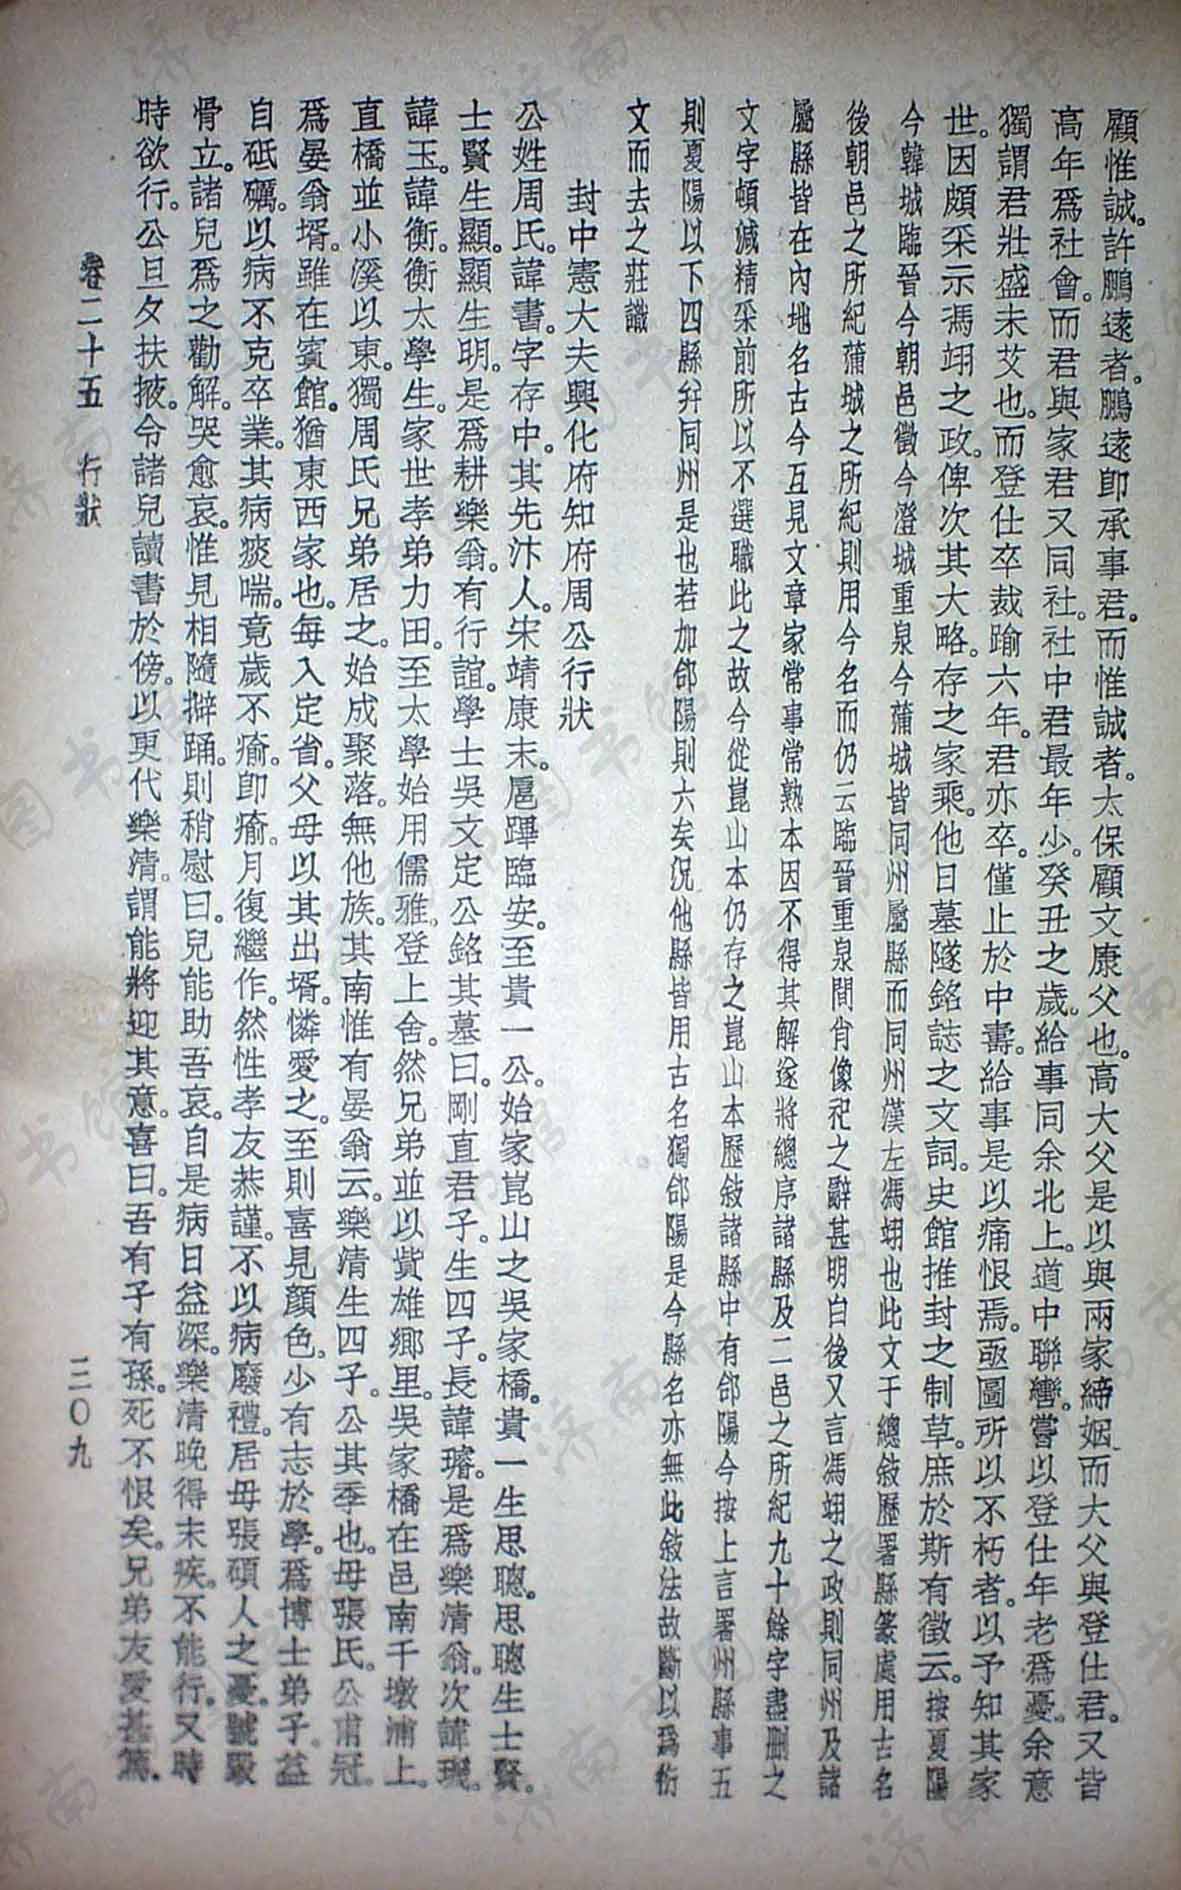 顧惟誠。許鵬遠者。鵬遠卽承事君。而惟誠者。太保顧文康父也。高大父是以與兩家締姻而大父與登仕君。又皆
高年爲社會。而君與家君又同社。社中君最年少。癸丑之歲。給事同余北上。道中聯轡。嘗以登仕年老爲憂。余意
獨謂君壯盛未艾也。而登仕卒裁踰六年。君亦卒。僅止於中壽。給事是以痛恨焉。亟圖所以不朽者。以予知其家
世。因頗采示馮翊之政。俾次其大略。存之家乘。他日墓隧銘誌之文詞。史館推封之制草。庶於斯有徵云。按夏陽
今韓城臨晉今朝邑徵今澄城重泉今蒲城皆同州屬縣而同州漢左馮翊也此文于總敘歷署縣篆處用古名
後朝邑之所紀蒲城之所紀則用今名而仍云臨晉重泉間肖像祀之辭甚明白後又言馮翊之政則同州及諸
屬縣皆在內地名古今互見文章家常事常熟本因不得其解遂將總序諸縣及二邑之所紀九十餘字盡刪之
文字頓減精采前所以不選職此之故今從崑山本仍存之崑山本歷敍諸縣中有郃陽今按上言署州縣事五
則夏陽以下四縣幷同州是也若加郃陽則六矣況他縣皆用古名獨郃陽是今縣名亦無此敍法故斷以爲衍
文而去之莊識
封中憲大夫興化府知府周公行狀
公姓周氏。諱書。字存中。其先汴人。宋靖康末。扈蹕臨安。至貴一公。始家崑山之吳家橋。貴一生思聰。思聰生士賢。
士賢生顯。顯生明。是爲耕樂翁。有行誼。學士吳文定公銘其墓曰。剛直君子。生四子。長諱璿。是爲樂清翁。次諱璣。
諱玉。諱衡。衡太學生。家世孝弟力田。至太學始用儒雅。登上舍。然兄弟並以貲雄鄉里。吳家橋在邑南千墩浦上。
直橋並小溪以東。獨周氏兄弟居之。始成聚落。無他族。其南惟有晏翁云。樂清生四子。公其季也。母張氏。公甫冠。
爲晏翁壻。雖在賓館。猶東西家也。每入定省。父母以其出壻。憐愛之。至則喜見顏色。少有志於學。爲博士弟子。益
自砥礪。以病不克卒業。其病痰喘。竟歲不瘉。卽瘉。月復繼作。然性孝友恭謹。不以病廢禮。居母張碩人之憂。號毀
骨立。諸兒爲之勸解。哭愈哀。惟見相隨擗踊。則稍慰曰。兒能助吾哀。自是病日益深。樂清晚得末疾。不能行。又時
時欲行。公旦夕扶掖。令諸兒讀書於傍。以更代樂清。謂能將迎其意。喜曰。吾有子有孫。死不恨矣。兄弟友愛甚篤。
卷二十五 行狀 三〇九